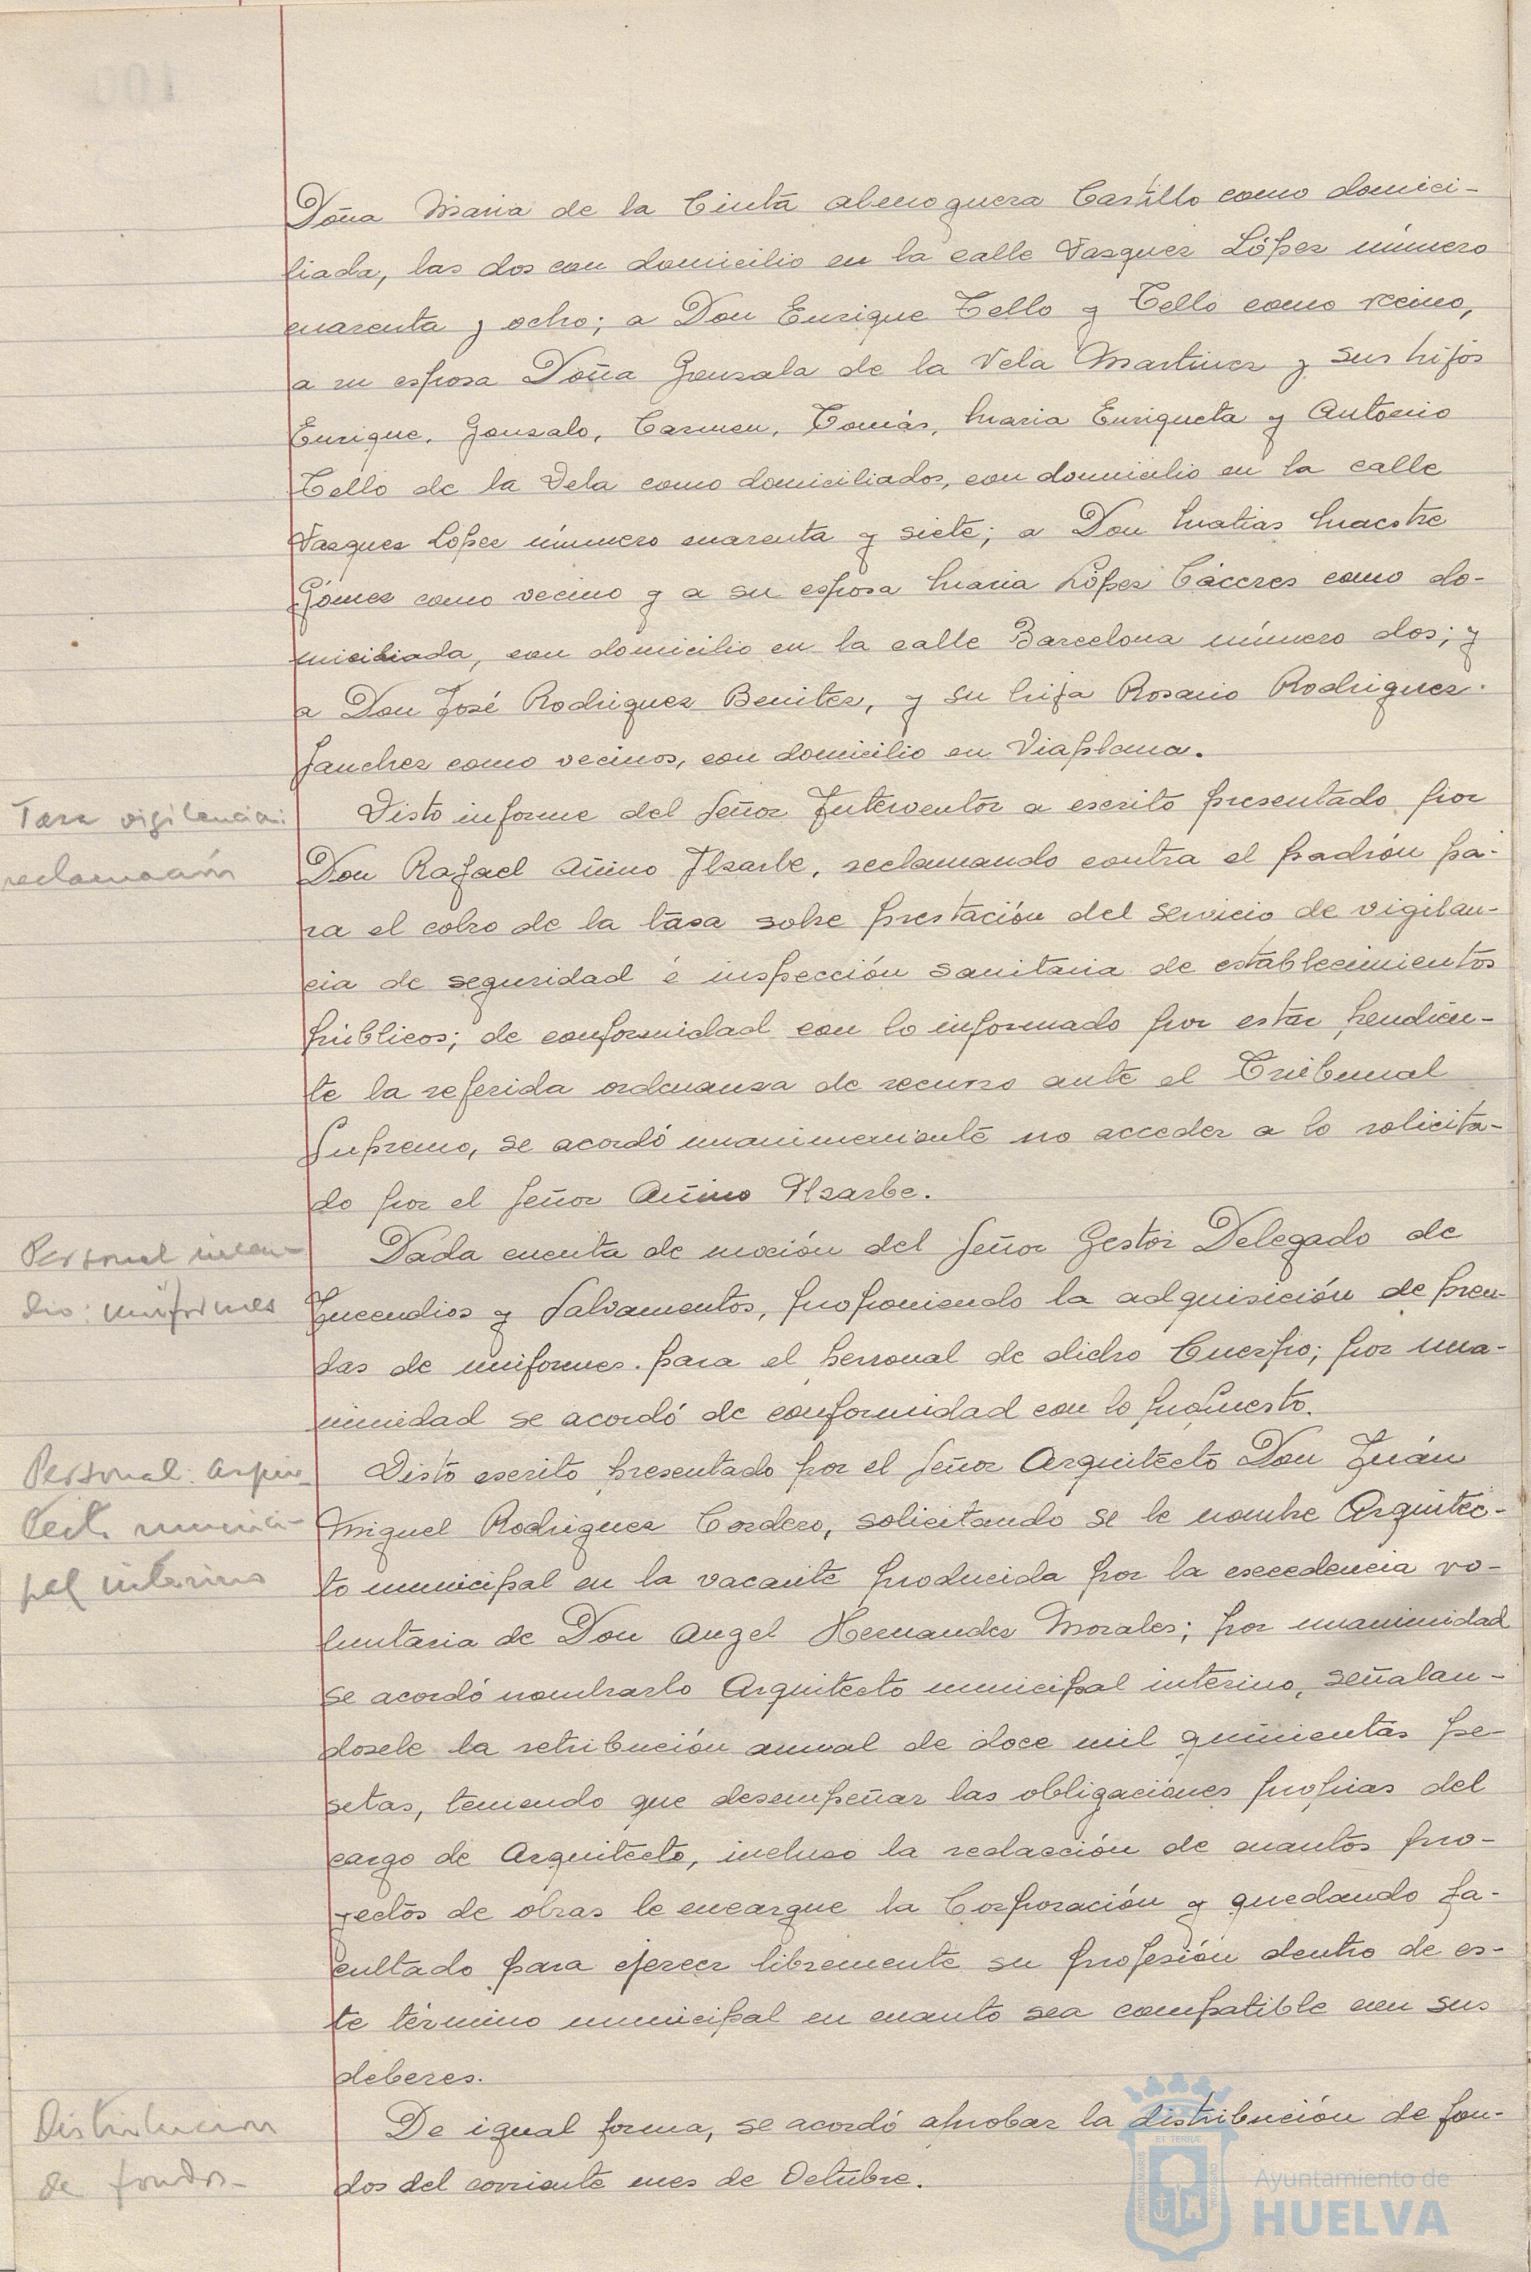 Doña Maria de la Cinta Almoguera Castillo como domici-
liada, las dos con domicilio en la calle Vasquez López número
cuarenta y ocho; a Don Enrique Tello y Tello como vecino,
a su esposa Doña Gonzala de la Vela Martinez y sus hijos
Enrique, Gonzalo, Carmen, Tomás, Maria Enriqueta y Antonio
Tello de la Vela como domiciliados, con domicilio en la calle
Vasquez López número cuarenta y siete; a Don Matias Maestre
Gómez como vecino y a su esposa Maria López Cáceres como do-
miciliada, con domicilio en la calle Barcelona número dos; y
a Don José Rodriguez Benitez, y su hija Rosario Rodriguez
Sanchez como vecinos, con domicilio en Viaplana.
Tasa vigilancia:
reclamación
Visto informe del Señor Interventor a escrito presentado por
Don Rafael Añino Ilzarbe, reclamando contra el padrón pa-
ra el cobro de la tasa sobre prestación del servicio de vigilan-
cia de seguridad é inspección sanitaria de establecimientos
públicos; de conformidad con lo informado por estar pendien-
te la referida ordenanza de recurso ante el Tribunal
Supremo, se acordó unanimemente no acceder a lo solicita-
do por el Señor Añino Ilzarbe.
Personal incen-
dio: uniformes
Dada cuenta de moción del Señor Gestor Delegado de
Incendios y Salvamentos, proponiendo la adquisición de pren-
das de uniformes para el personal de dicho Cuerpo; por una-
nimidad se acordó de conformidad con lo propuesto.
Personal: Arqui-
tecto munici-
pal interino
Visto escrito presentado por el Señor Arquitecto Don Juán
Miguel Rodriguez Cordero, solicitando se le nombre Arquitec-
to municipal en la vacante producida por la excedencia vo-
luntaria de Don Angel Hernandez Morales; por unanimidad
se acordó nombrarlo Arquitecto municipal interino, señalan-
dosele la retribución anual de doce mil quinientas pe-
setas, teniendo que desempeñar las obligaciones propias del
cargo de Arquitecto, incluso la redacción de cuantos pro-
yectos de obras le encargue la Corporación y quedando fa-
cultado para ejercer libremente su profesión dentro de es-
te término municipal en cuanto sea compatible con sus
deberes.
Distribucion
de fondos-
De igual forma, se acordó aprobar la distribución de fon-
dos del corriente mes de Octubre.
Ayuntamiento de
HUELVA